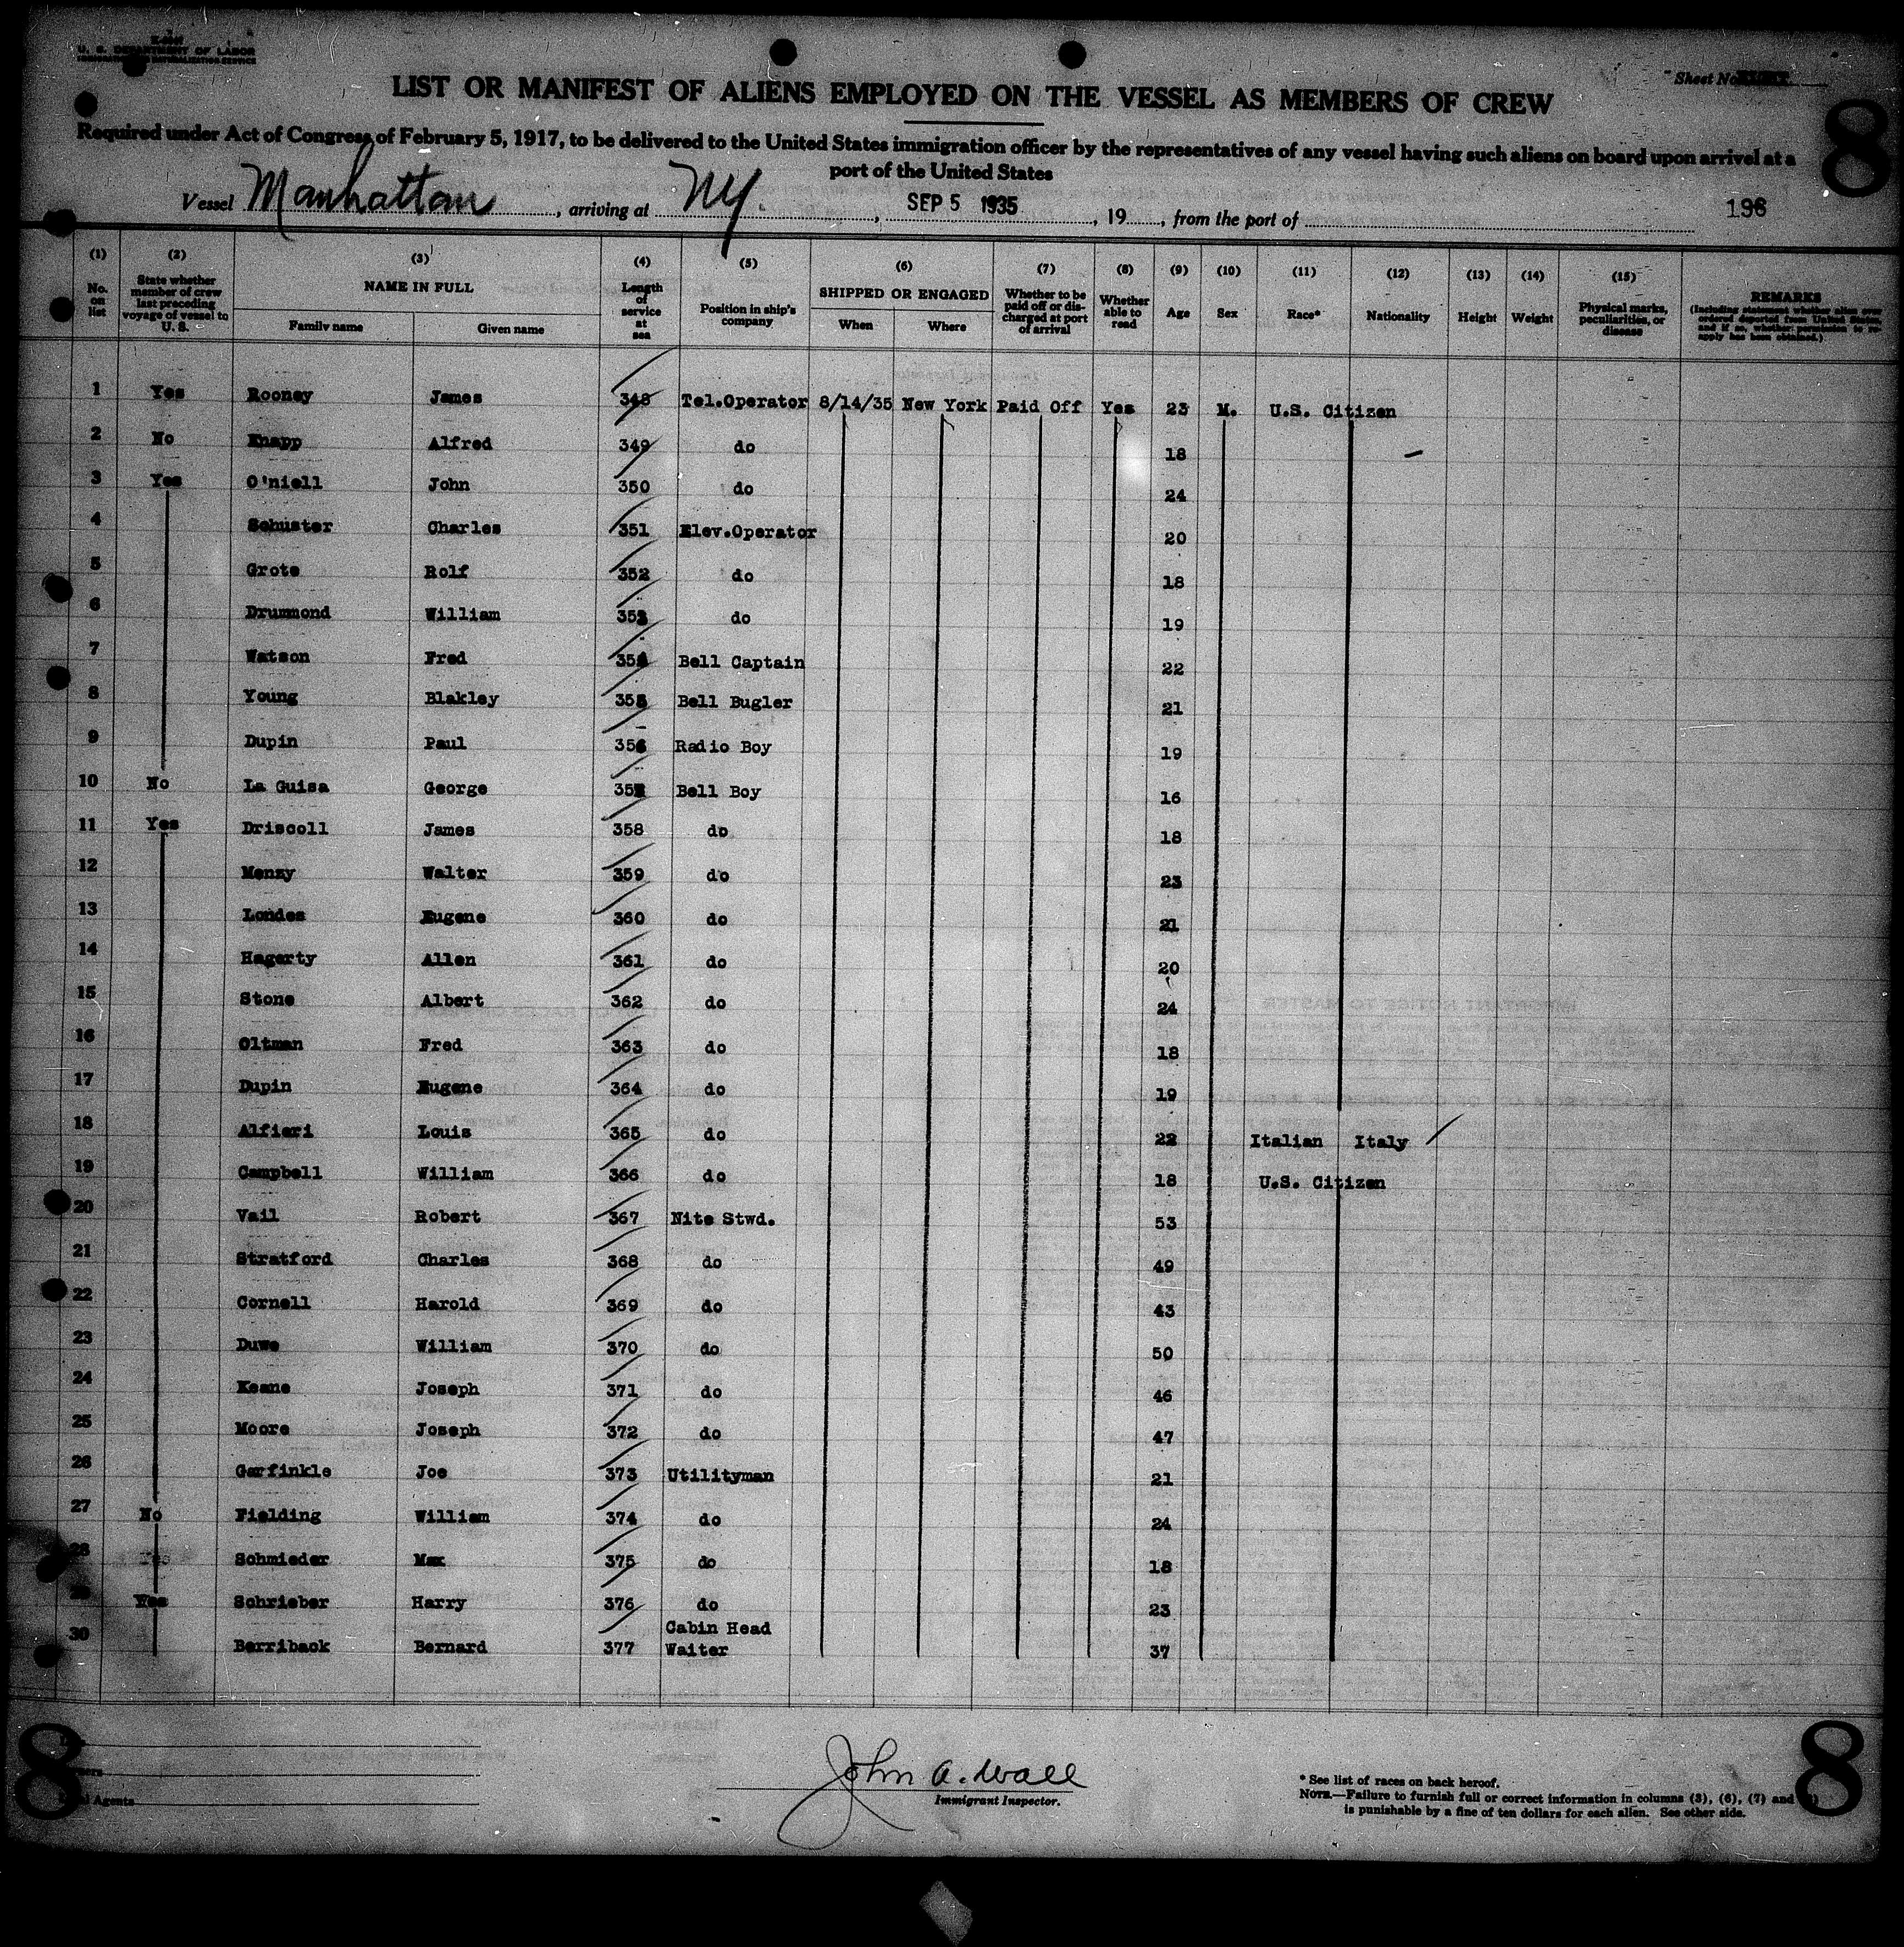 U. S. DEPARTMENT OF LABOR
Sheet No.
LIST OR MANIFEST OF ALIENS EMPLOYED ON THE VESSEL AS MEMBERS OF CREW
8
Required under Act of Congress of February 5, 1917, to be delivered to the United States immigration officer by the representatives of any vessel having such aliens on board upon arrival at a
port of the United States
Vessel Manhattan, arriving at NY., SEP 5 1935, 19, from the port of
196
(1) (2) (3) (4) (5) (6) (7) (8) (9) (10) (11) (12) (13) (14) (15)
No. on list
State whether member of crew last preceding voyage of vessel to U. S.
NAME IN FULL
Family name Given name
Length of service at sea
Position in ship's company
SHIPPED OR ENGAGED
When Where
Whether to be paid off or discharged at port of arrival
Whether able to read
Age
Sex
Race*
Nationality
Height
Weight
Physical marks, peculiarities, or disease
REMARKS
(Including statement whether alien ever ordered deported from United States, and if so, whether permission to reapply has been obtained.)
1 Yes Rooney James 348 Tel.Operator 8/14/35 New York Paid Off Yes 23 M. U.S. Citizen
2 No Knapp Alfred 349 do 18
3 Yes O'niell John 350 do 24
4 Schuster Charles 351 Elev.Operator 20
5 Grote Rolf 352 do 18
6 Drummond William 353 do 19
7 Watson Fred 354 Bell Captain 22
8 Young Blakley 355 Bell Bugler 21
9 Dupin Paul 356 Radio Boy 19
10 No La Guisa George 357 Bell Boy 16
11 Yes Driscoll James 358 do 18
12 Menzy Walter 359 do 23
13 Londes Eugene 360 do 21
14 Hagerty Allen 361 do 20
15 Stone Albert 362 do 24
16 Oltman Fred 363 do 18
17 Dupin Eugene 364 do 19
18 Alfieri Louis 365 do 22 Italian Italy
19 Campbell William 366 do 18 U.S. Citizen
20 Vail Robert 367 Nite Stwd. 53
21 Stratford Charles 368 do 49
22 Cornell Harold 369 do 43
23 Duwe William 370 do 50
24 Keane Joseph 371 do 46
25 Moore Joseph 372 do 47
26 Garfinkle Joe 373 Utilityman 21
27 No Fielding William 374 do 24
28 Schmieder Max 375 do 18
29 Yes Schrieber Harry 376 do 23
30 Berriback Bernard 377 Cabin Head Waiter 37
8
Agents
John A. Wall
Immigrant Inspector.
* See list of races on back hereof.
NOTE.—Failure to furnish full or correct information in columns (3), (6), (7) and
is punishable by a fine of ten dollars for each alien. See other side.
8